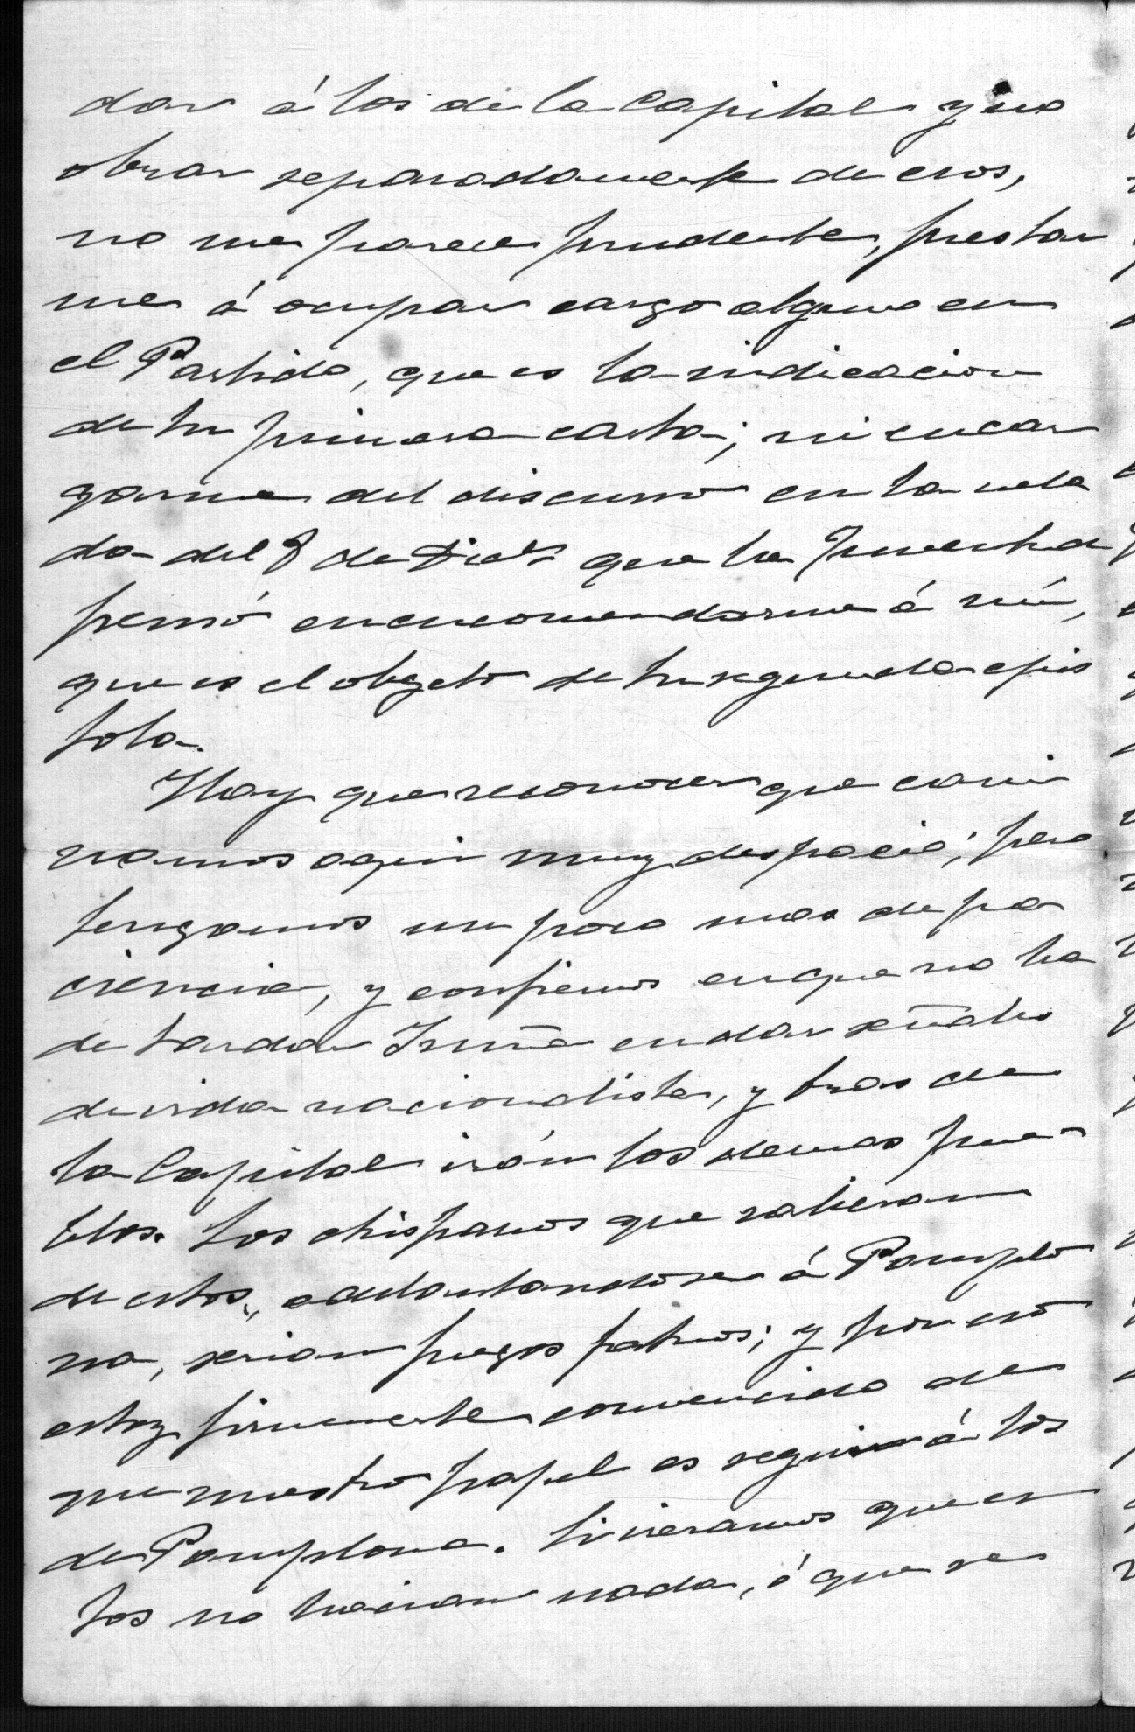 dar á los de la Capital y no
obrar separadamente de esos,
no me parece prudente, prestar
me á ocupar cargo alguno en
el Partido, que es la indicacion
de tu primera carta; ni encar
garme del discurso en la vela
da del 8 de Dicbre que la Junta de
pensó encomendarme á mí,
que es el objeto de tu segunda epis
tola.
Hay que reconocer que cami
namos aquí muy despacio; pero
tengamos un poco mas de pa
ciencia, y confiemos en que no ha
de tardar Iruña en dar señales
de vida nacionalista, y tras de
la Capital irán los demas pue-
blos. Los chispazos que salieran
de estos, adelantandose á Pamplo
na, serian fuegos fatuos; y por eso
estoy firmemente convencido de
que nuestro papel es seguir á los
de Pamplona. Si vieramos que es
tos no hacian nada, ó que se